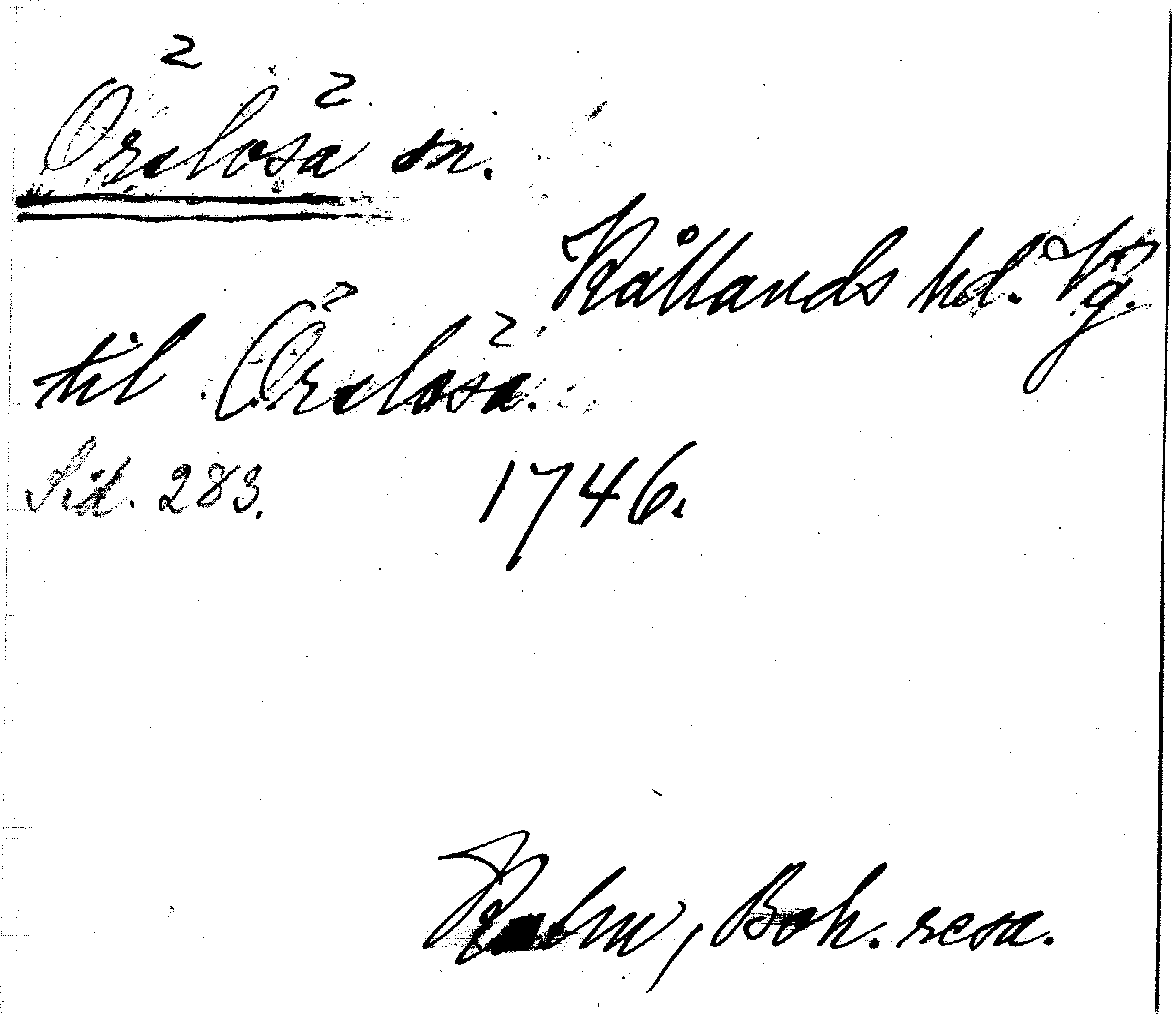 Örslösa sn.
Kållands hd. Vg.
til Örslösa.
Sid. 283. 1746.
Kalm, Boh. resa.